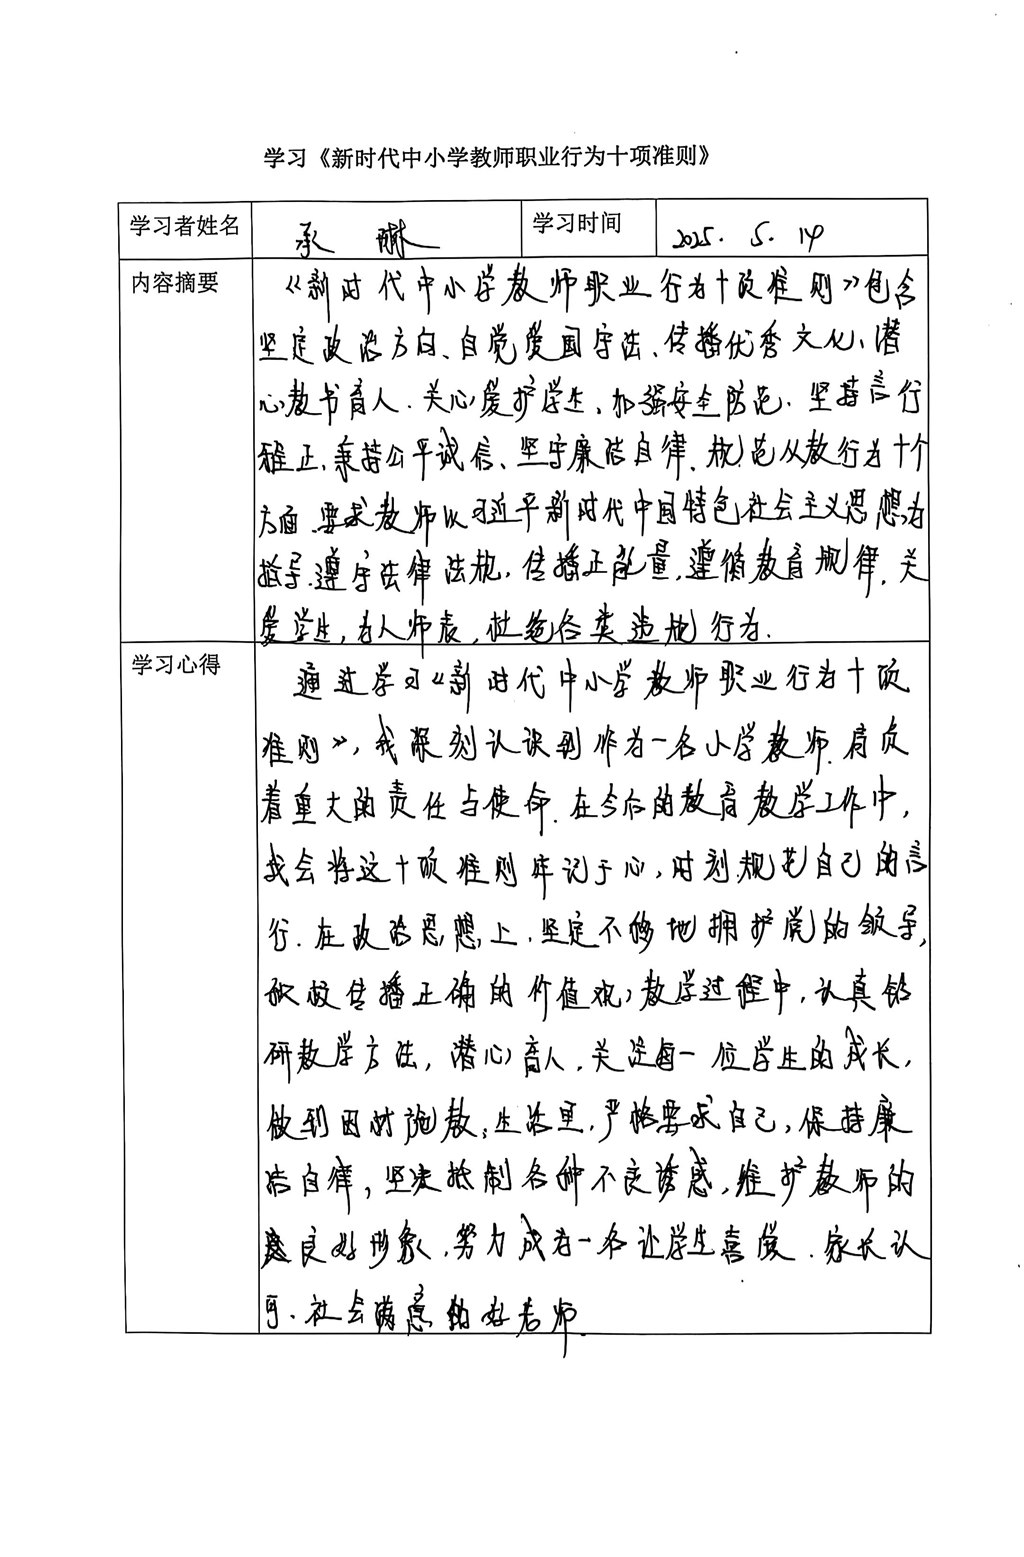 学习《新时代中小学教师职业行为十项准则》
学习者姓名 承 琳 学习时间 2025. 5. 14
内容摘要
《新时代中小学教师职业行为十项准则》包含
坚定政治方向、自觉爱国守法、传播优秀文化、潜
心教书育人、关心爱护学生、加强安全防范、坚持言行
雅正、秉持公平诚信、坚守廉洁自律、规范从教行为十个
方面、要求教师以习近平新时代中国特色社会主义思想为
指导、遵守法律法规、传播正能量，遵循教育规律、关
爱学生，为人师表，杜绝各类违规行为.
学习心得
通过学习《新时代中小学教师职业行为十项
准则》，我深刻认识到作为一名小学教师.肩负
着重大的责任与使命.在今后的教育教学工作中，
我会将这十项准则牢记于心，时刻规范自己的言
行.在政治思想上，坚定不移地拥护党的领导，
积极传播正确的价值观；教学过程中，认真钻
研教学方法，潜心育人，关注每一位学生的成长，
做到因材施教；生活里，严格要求自己，保持廉
洁自律，坚决抵制各种不良诱惑，维护教师的
良好形象，努力成为一名让学生喜爱、家长认
可、社会满意的好老师.